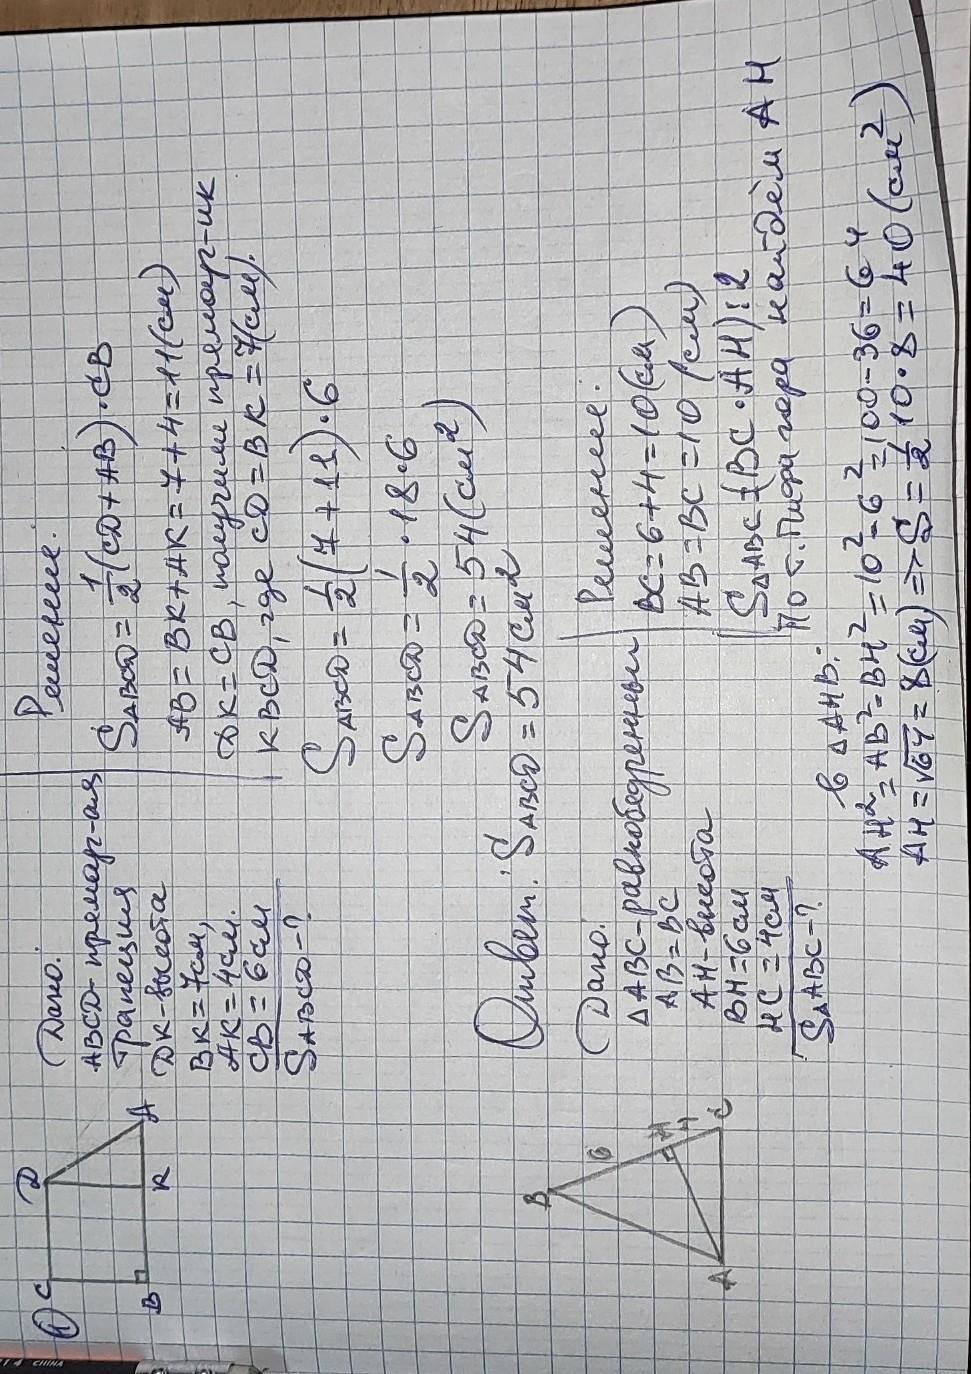 1) C D
B K A
Дано.
ABCD-прямоуг-ая
трапеция
DK-высота
BK=7см,
AK=4см.
CB=6см
SABCD-?
Решение.
SABCD=1/2(CD+AB)·CB
AB=BK+AK=7+4=11(см)
DK=CB, получим прямоуг-ик
KBCD, где CD=BK=7(см).
SABCD=1/2(7+11)·6
SABCD=1/2·18·6
SABCD=54(см²)
Ответ: SABCD=54см²
B
6
H
4
A C
Дано:
ΔABC-равнобедренный
AB=BC
AH-высота
BH=6см
HC=4см
SΔABC-?
Решение.
BC=6+4=10(см)
AB=BC=10(см)
SΔABC=(BC·AH):2
По т.Пифагора найдём AH
в ΔAHB:
AH²=AB²=BH²=10²-6²=100-36=64
AH=√64=8(см)=>S=1/2 10·8=40(см²)
4 CHINA